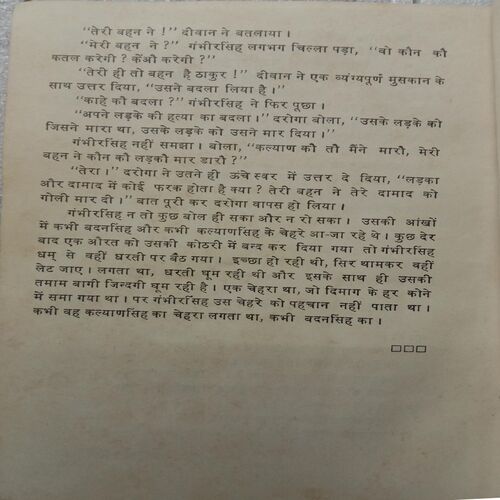 “तेरी बहन ने !” दीवान ने बतलाया ।
“मेरी बहन ने ?” गंभीरसिंह लगभग चिल्ला पड़ा, “वो कौन कौ
कतल करेगी ? केंऔ करेगी ?”
“तेरी ही तो बहन है ठाकुर !” दीवान ने एक व्यंग्यपूर्ण मुसकान के
साथ उत्तर दिया, “उसने बदला लिया है ।”
“काहे कौ बदला ?” गंभीरसिंह ने फिर पूछा ।
“अपने लड़के की हत्या का बदला ।” दरोगा बोला, “उसके लड़के को
जिसने मारा था, उसके लड़के को उसने मार दिया ।”
गंभीरसिंह नहीं समझा । बोला, “कल्याण कौ तौ मैंने मारौ, मेरी
बहन ने कौन कौ लड़कौ मार डारौ ?”
“तेरा ।” दरोगा ने उतने ही ऊंचे स्वर में उत्तर दे दिया, “लड़का
और दामाद में कोई फरक होता है क्या ? तेरी बहन ने तेरे दामाद को
गोली मार दी ।” बात पूरी कर दरोगा वापस हो लिया ।
गंभीरसिंह न तो कुछ बोल ही सका और न रो सका । उसकी आंखों
में कभी बदनसिंह और कभी कल्याणसिंह के चेहरे आ-जा रहे थे । कुछ देर
बाद एक औरत को उसकी कोठरी में बन्द कर दिया गया तो गंभीरसिंह
धम् से वहीं धरती पर बैठा गया । इच्छा हो रही थी, सिर थामकर वहीं
लेट जाए । लगता था, धरती घूम रही थी और इसके साथ ही उसकी
तमाम बागी जिन्दगी घूम रही है । एक चेहरा था, जो दिमाग के हर कोने
में समा गया था । पर गंभीरसिंह उस चेहरे को पहचान नहीं पाता था ।
कभी वह कल्याणसिंह का चेहरा लगता था, कभी बदनसिंह का ।